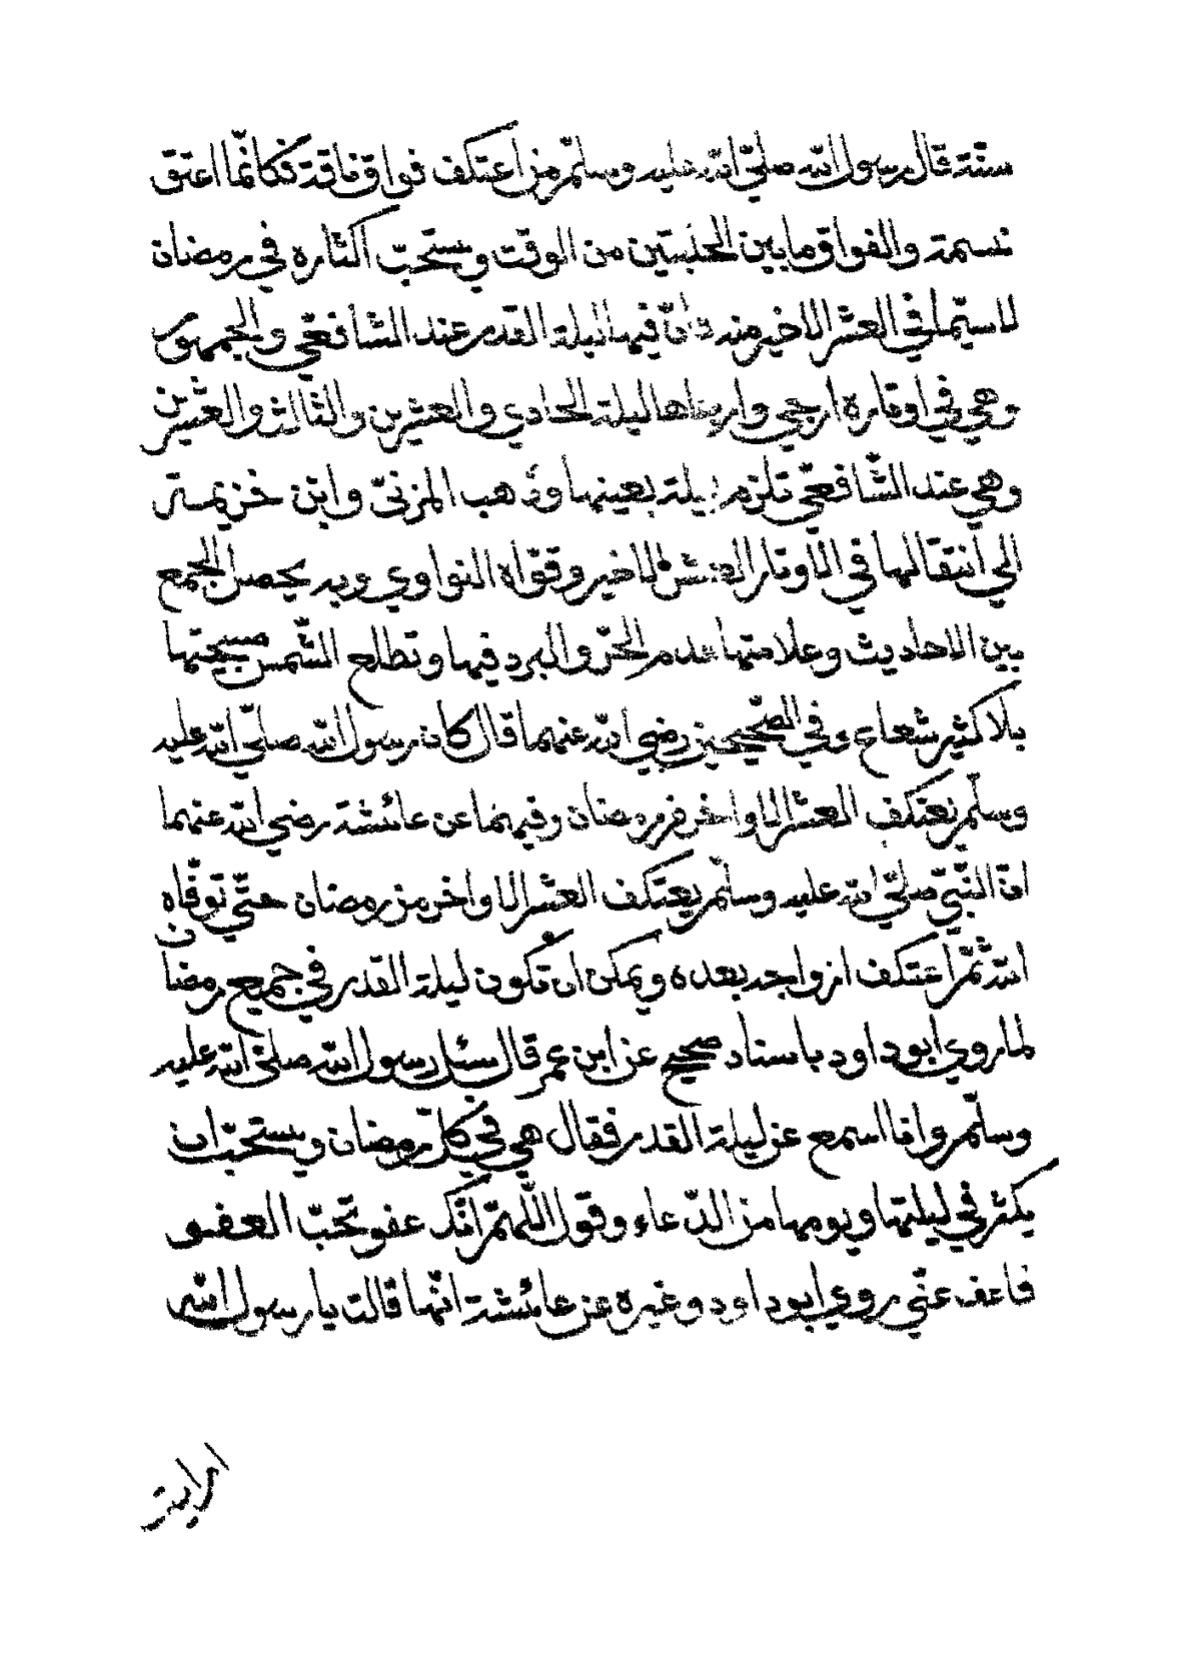 سنة قال رسول الله صلّى الله عليه وسلّم من اعتكف فواق ناقة فكانّما اعتق
نسمة والفواق ما بين الحلبتين من الوقت ويستحبّ اكثاره في رمضان
لا سيّما في العشر الاخير منه لانّ فيها ليلة القدر عند الشافعيّ والجمهور
وهي في اوتاره ارجى وارجاها ليلة الحادي والعشرين والثالث والعشرين
وهي عند الشّافعيّ تلزم ليلة بعينها وذهب المزنيّ وابن خزيمة
الى انتقالها في الاوتار العشر الاخير وقوّاه النواوي وبه يحصل الجمع
بين الاحاديث وعلامتها عدم الحرّ والبرد فيها وتطلع الشّمس صبيحتها
بلا كثير شعاع وفي الصّحيحين رضي الله عنهما قال كان رسول الله صلّى الله عليه
وسلّم يعتكف العشر الاواخر من رمضان وفيهما عن عائشة رضي الله عنهما
انّ النّبيّ صلّى الله عليه وسلّم يعتكف العشر الاواخر من رمضان حتّى توفّاه
الله ثمّ اعتكف ازواجه بعده ويمكن ان تكون ليلة القدر في جميع رمضان
لما روي ابو داود باسناد صحيح عن ابن عمر قال سئل رسول الله صلّى الله عليه
وسلّم وانا اسمع عن ليلة القدر فقال هي في كلّ رمضان ويستحبّ ان
يكثر في ليلتها ويومها من الدّعاء وقول اللّهمّ انّك عفو تحبّ العفو
فاعف عنّي روي ابو داود وغيره عن عائشة انّها قالت يا رسول الله